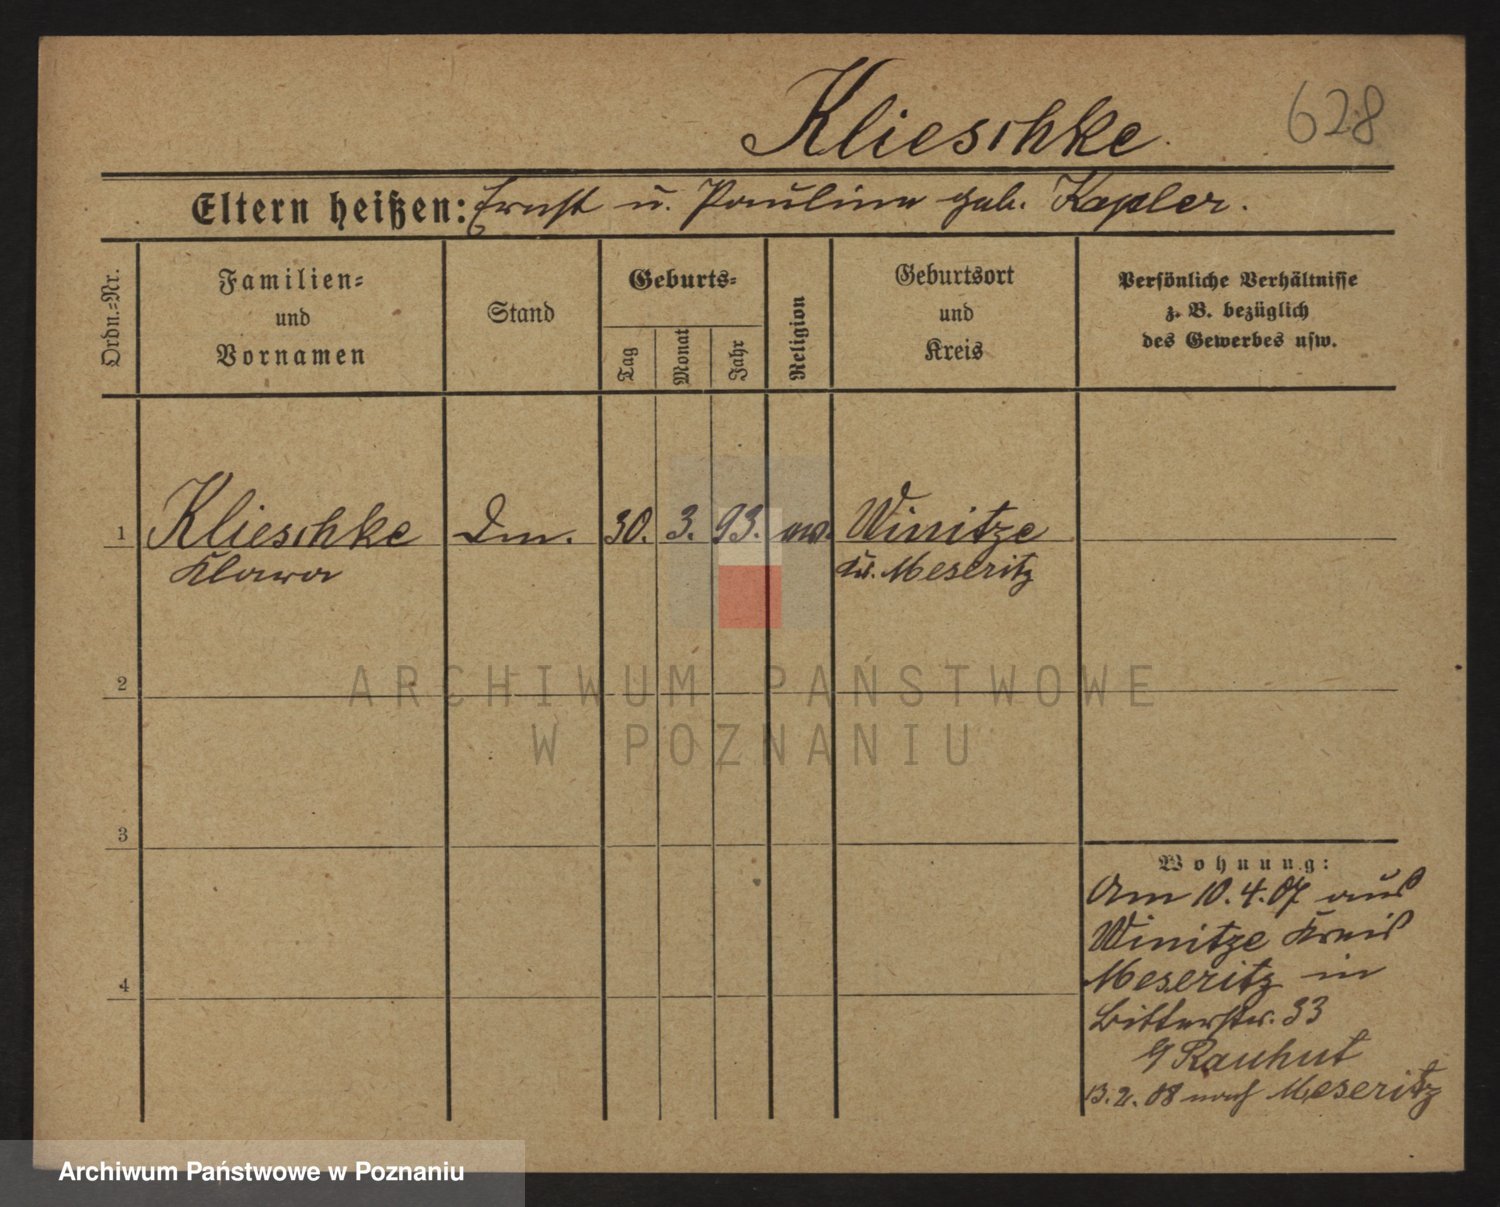 Klieschke
628
Eltern heißen: Ernst u. Pauline geb. Kapler.
Ordn.-Nr.
Familien-
und
Vornamen
Stand
Geburts-
Tag
Monat
Jahr
Religion
Geburtsort
und
Kreis
Persönliche Verhältnisse
z. B. bezüglich
des Gewerbes usw.
1 Klieschke 30. 3. 93. Winitze
Klara Kr. Meseritz
2
ARCHIWUM PAŃSTWOWE
W POZNANIU
3
Wohnung:
Am 10.4.07 aus
Winitze Kreis
4
Meseritz in
Ritterstr. 33
Rauhut
13.2.08 nach Meseritz
Archiwum Państwowe w Poznaniu